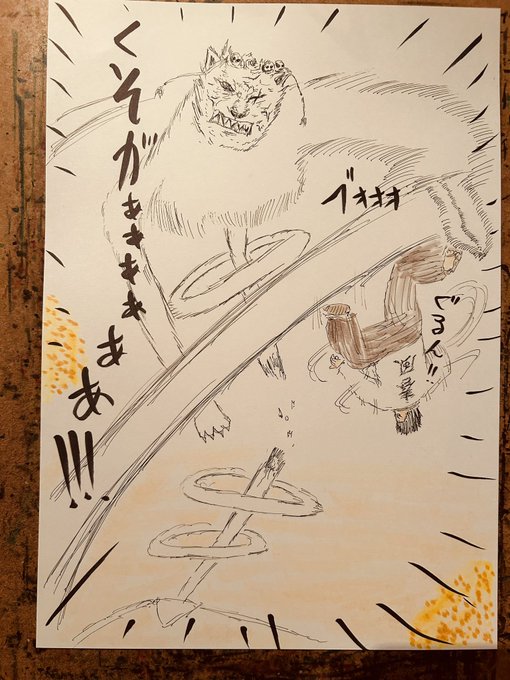 くそがぁぁぁぁああ!!!
ブォォォ
ぐるん!!